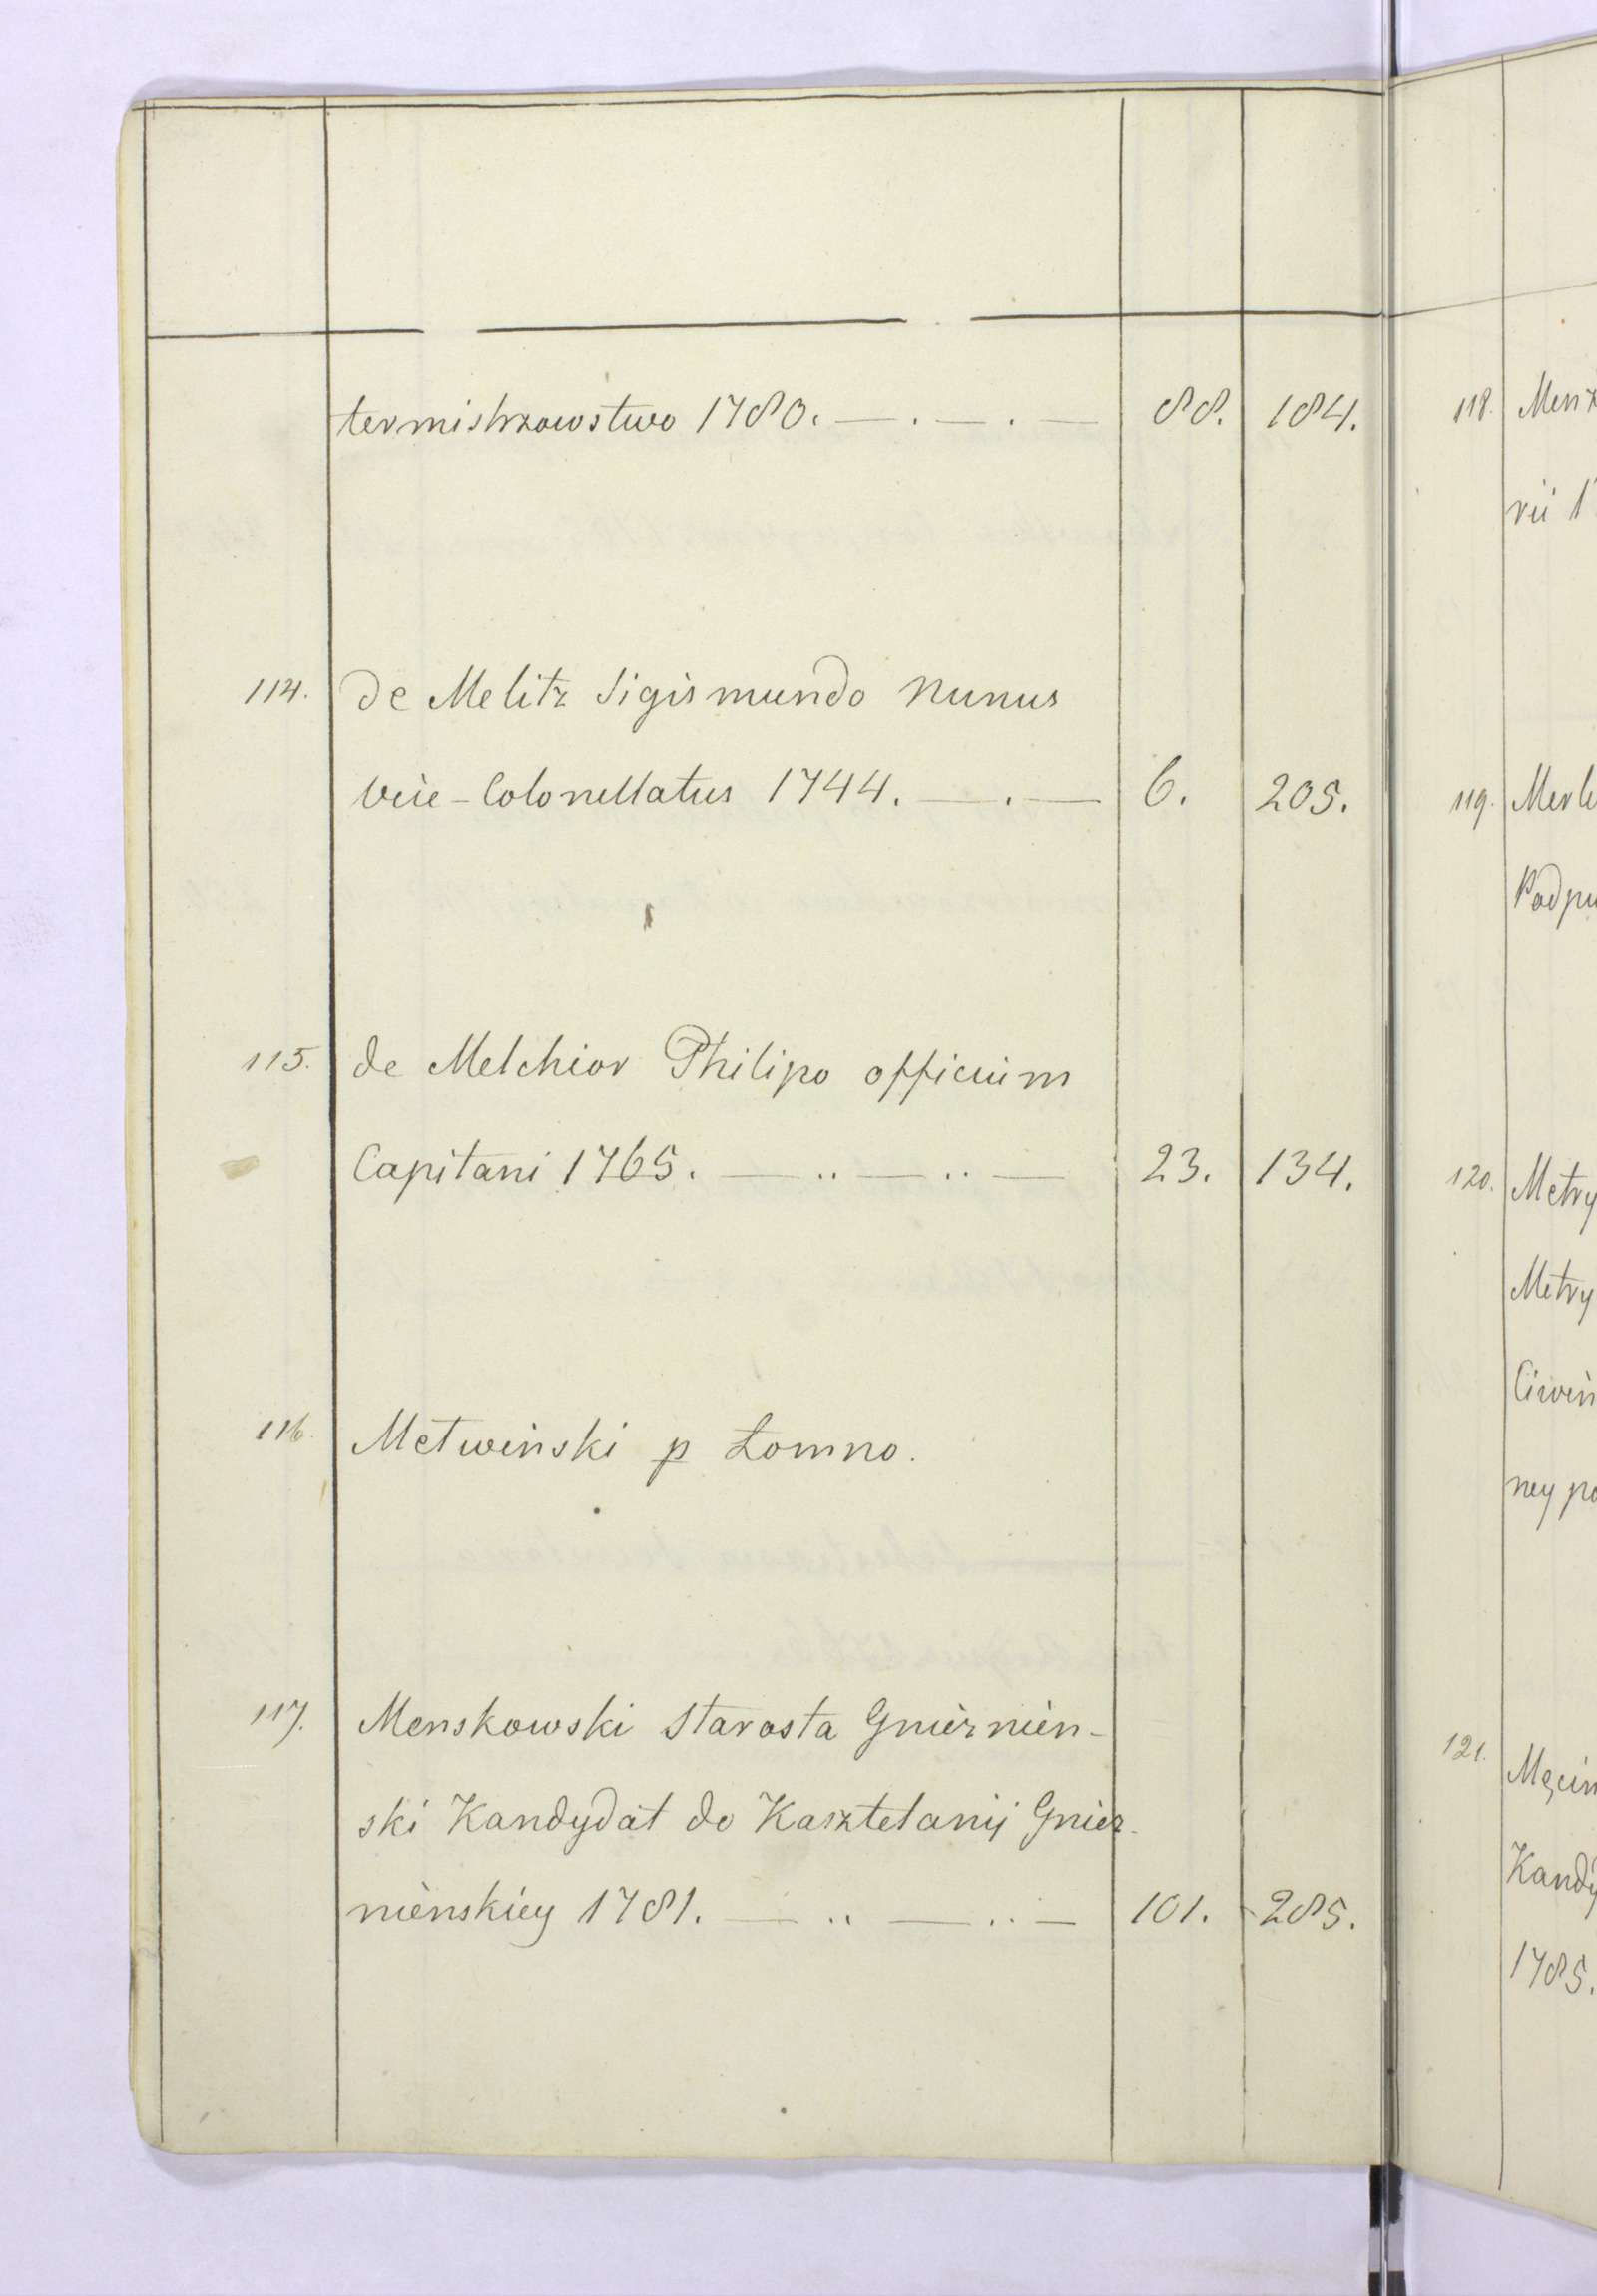 termistrzowstwo 1780. — . — . — 88. 184.
114. de Melitz Sigismundo Nunus
Vice-Colonellatus 1744. — . — 6. 205.
115. de Melchior Philipo officium
Capitani 1765. — .. — .. — 23. 134.
116. Metwinski p Łomno.
117. Menskowski Starosta Gnieznien-
ski Kandydat do Kasztelanij Gniez-
nienskiey 1781. — .. — .. — 101. 285.
118.
rii 1
119.
120. Metry
Metry
ney
121.
1785.